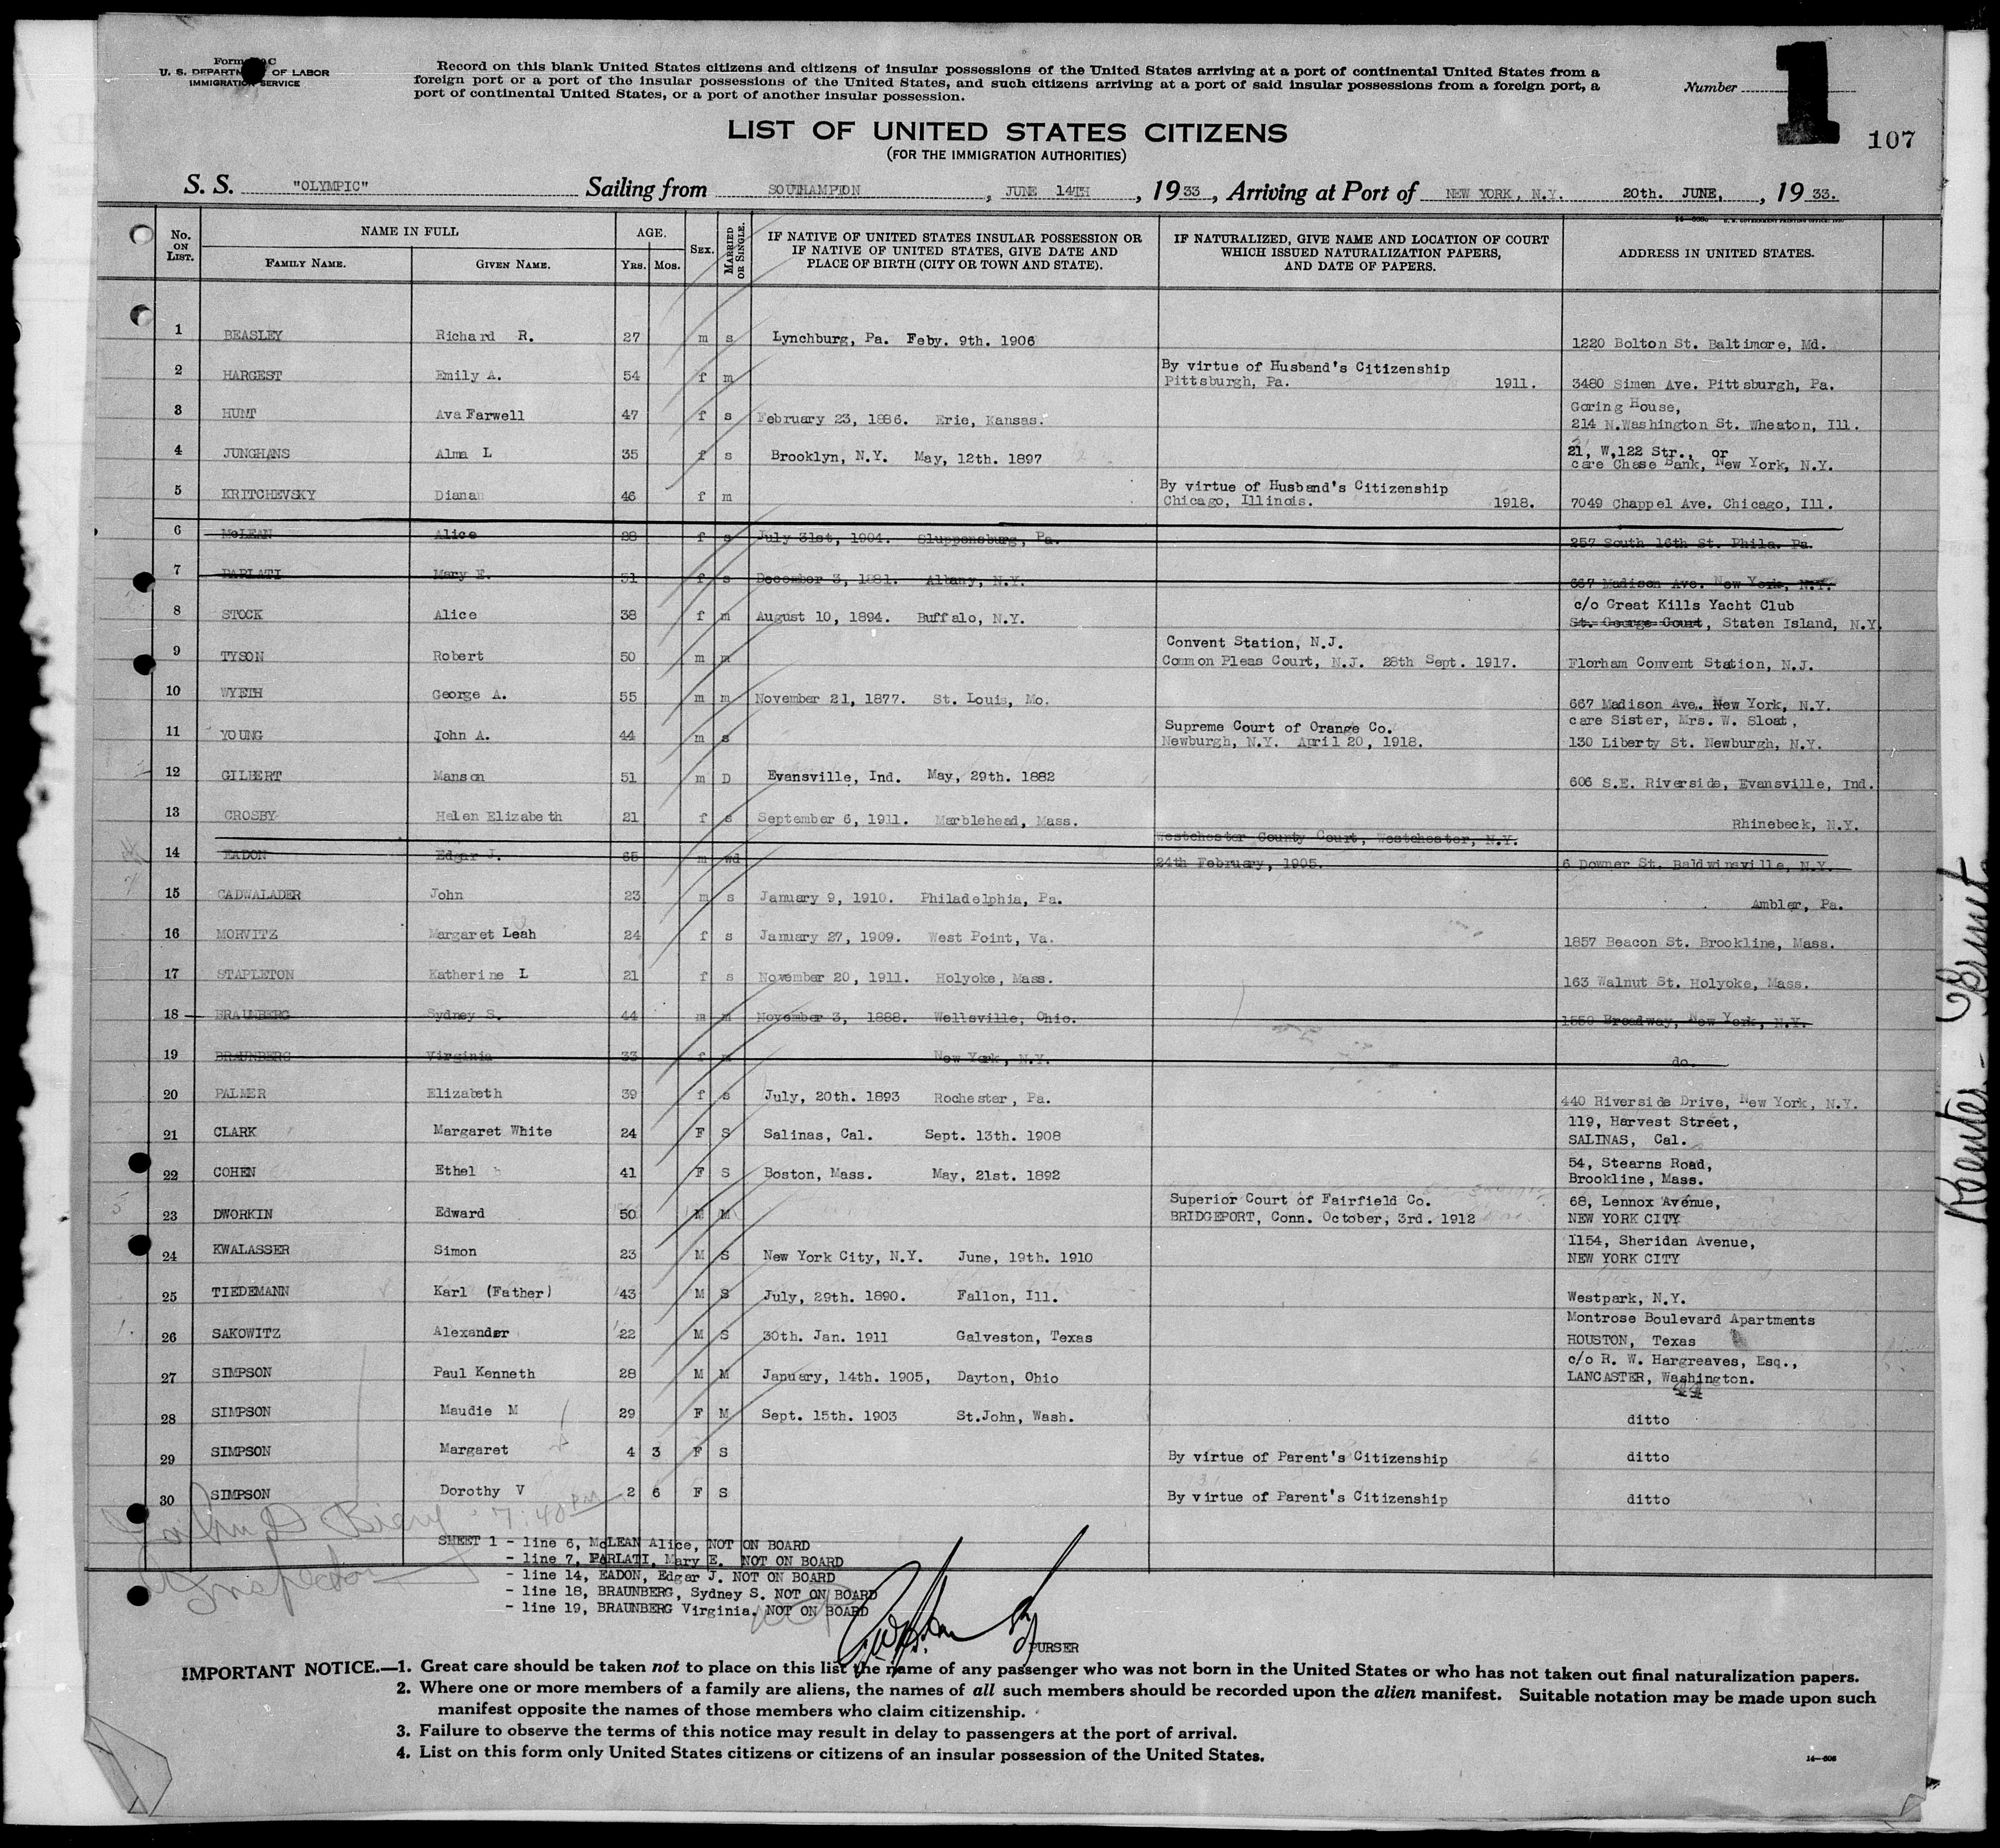 Form C
U. S. DEPARTMENT OF LABOR
IMMIGRATION SERVICE
Record on this blank United States citizens and citizens of insular possessions of the United States arriving at a port of continental United States from a
foreign port or a port of the insular possessions of the United States, and such citizens arriving at a port of said insular possessions from a foreign port, a
port of continental United States, or a port of another insular possession.
Number 1
107
LIST OF UNITED STATES CITIZENS
(FOR THE IMMIGRATION AUTHORITIES)
S. S. "OLYMPIC" Sailing from SOUTHAMPTON, JUNE 14TH, 1933, Arriving at Port of NEW YORK, N.Y. 20th. JUNE, , 1933.
No. ON LIST. NAME IN FULL FAMILY NAME. GIVEN NAME. AGE. YRS. MOS. SEX. MARRIED OR SINGLE. IF NATIVE OF UNITED STATES INSULAR POSSESSION OR IF NATIVE OF UNITED STATES, GIVE DATE AND PLACE OF BIRTH (CITY OR TOWN AND STATE). IF NATURALIZED, GIVE NAME AND LOCATION OF COURT WHICH ISSUED NATURALIZATION PAPERS, AND DATE OF PAPERS. ADDRESS IN UNITED STATES.
1 BEASLEY Richard R. 27 m s Lynchburg, Pa. Feby. 9th. 1906 1220 Bolton St. Baltimore, Md.
2 HARGEST Emily A. 54 f m By virtue of Husband's Citizenship
Pittsburgh, Pa. 1911. 3480 Simen Ave. Pittsburgh, Pa.
3 HUNT Ava Farwell 47 f s February 23, 1886. Erie, Kansas. Goring House,
214 N.Washington St. Wheaton, Ill.
4 JUNGHANS Alma L 35 f s Brooklyn, N.Y. May, 12th. 1897 21, W,122 Str., or
care Chase Bank, New York, N.Y.
5 KRITCHEVSKY Diana 46 f m By virtue of Husband's Citizenship
Chicago, Illinois. 1918. 7049 Chappel Ave. Chicago, Ill.
6 McLEAN Alice 28 f s July 31st, 1904. Sluppensburg, Pa. 257 South 16th St. Phila. Pa.
7 PARLATI Mary E. 51 f s December 3, 1881. Albany, N.Y. 667 Madison Ave. New York, N.Y.
8 STOCK Alice 38 f m August 10, 1894. Buffalo, N.Y. c/o Great Kills Yacht Club
St. George Court, Staten Island, N.Y.
9 TYSON Robert 50 m m Convent Station, N.J.
Common Pleas Court, N.J. 28th Sept. 1917. Florham Convent Station, N.J.
10 WYETH George A. 55 m m November 21, 1877. St. Louis, Mo. 667 Madison Ave. New York, N.Y.
11 YOUNG John A. 44 m s Supreme Court of Orange Co. care Sister, Mrs. W. Sloat,
Newburgh, N.Y. April 20, 1918. 130 Liberty St. Newburgh, N.Y.
12 GILBERT Manson 51 m D Evansville, Ind. May, 29th. 1882 606 S.E. Riverside, Evansville, Ind.
13 CROSBY Helen Elizabeth 21 f s September 6, 1911. Marblehead, Mass. Rhinebeck, N.Y.
14 EADON Edgar J. 65 m wd Westchester County Court, Westchester, N.Y.
24th February, 1905. 6 Downer St. Baldwinsville, N.Y.
15 CADWALADER John 23 m s January 9, 1910. Philadelphia, Pa. Ambler, Pa.
16 MORVITZ Margaret Leah 24 f s January 27, 1909. West Point, Va. 1857 Beacon St. Brookline, Mass.
17 STAPLETON Katherine L 21 f s November 20, 1911. Holyoke, Mass. 163 Walnut St. Holyoke, Mass.
18 BRAUNBERG Sydney S. 44 m m November 3, 1888. Wellsville, Ohio. 1550 Broadway, New York, N.Y.
19 BRAUNBERG Virginia 33 f m New York, N.Y. do.
20 PALMER Elizabeth 39 f s July, 20th. 1893 Rochester, Pa. 440 Riverside Drive, New York, N.Y.
21 CLARK Margaret White 24 F S Salinas, Cal. Sept. 13th. 1908 119, Harvest Street,
SALINAS, Cal.
22 COHEN Ethel 41 F S Boston, Mass. May, 21st. 1892 54, Stearns Road,
Brookline, Mass.
23 DWORKIN Edward 50 M M Superior Court of Fairfield Co. 68, Lennox Avenue,
BRIDGEPORT, Conn. October, 3rd. 1912 NEW YORK CITY
24 KWALASSER Simon 23 M S New York City, N.Y. June, 19th. 1910 1154, Sheridan Avenue,
NEW YORK CITY
25 TIEDEMANN Karl (Father) 43 M S July, 29th. 1890. Fallon, Ill. Westpark, N.Y.
26 SAKOWITZ Alexander 22 M S 30th. Jan. 1911 Galveston, Texas Montrose Boulevard Apartments
HOUSTON, Texas
27 SIMPSON Paul Kenneth 28 M M January, 14th. 1905, Dayton, Ohio c/o R. W. Hargreaves, Esq.,
LANCASTER, Washington.
44
28 SIMPSON Maudie M 29 F M Sept. 15th. 1903 St.John, Wash. ditto
29 SIMPSON Margaret 4 3 F S By virtue of Parent's Citizenship ditto
30 SIMPSON Dorothy V 2 6 F S By virtue of Parent's Citizenship ditto
7:40 PM
Inspector
SHEET 1 - line 6, McLEAN Alice, NOT ON BOARD
- line 7, PARLATI, Mary E. NOT ON BOARD
- line 14, EADON, Edgar J. NOT ON BOARD
- line 18, BRAUNBERG, Sydney S. NOT ON BOARD
- line 19, BRAUNBERG Virginia. NOT ON BOARD
PURSER
IMPORTANT NOTICE.—1. Great care should be taken not to place on this list the name of any passenger who was not born in the United States or who has not taken out final naturalization papers.
2. Where one or more members of a family are aliens, the names of all such members should be recorded upon the alien manifest. Suitable notation may be made upon such
manifest opposite the names of those members who claim citizenship.
3. Failure to observe the terms of this notice may result in delay to passengers at the port of arrival.
4. List on this form only United States citizens or citizens of an insular possession of the United States.
14—608